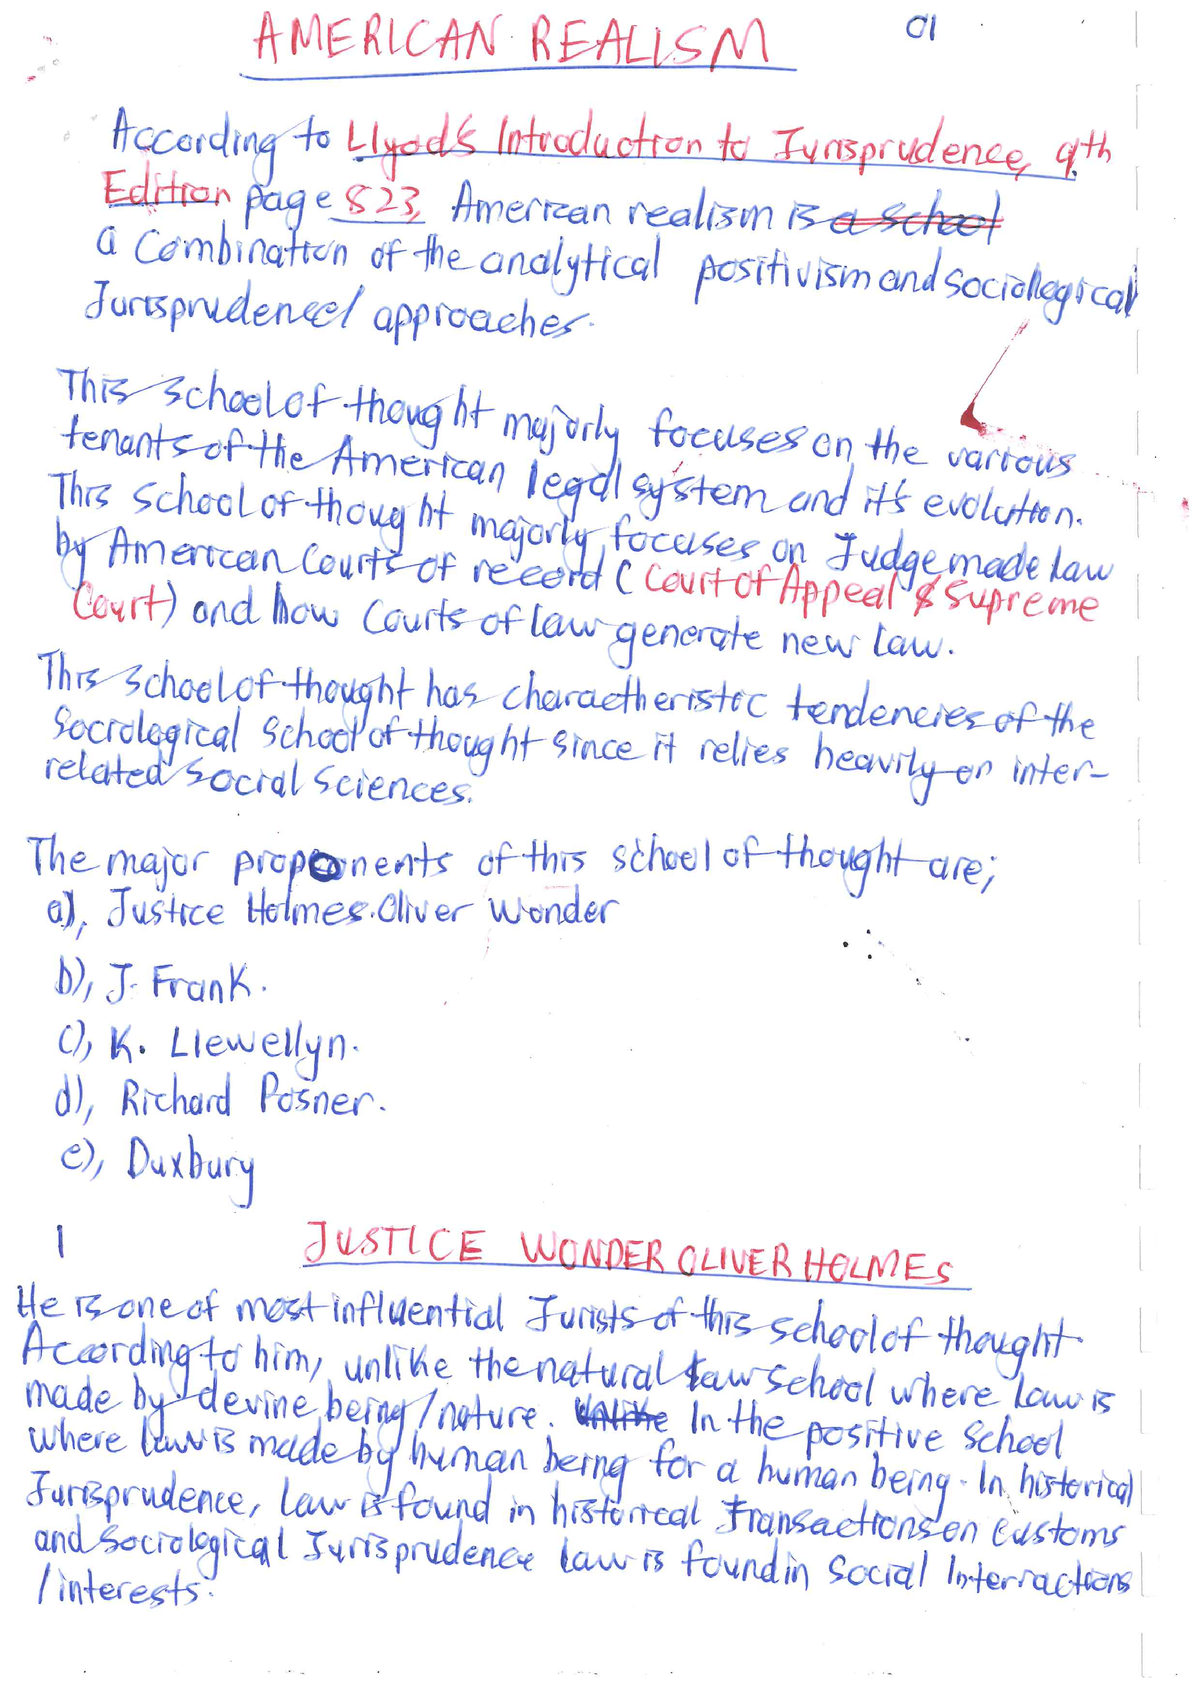 AMERICAN REALISM
01
According to Llyod's Introduction to Jurisprudence, 9th
Edition page 823, American realism is a school
a combination of the analytical positivism and sociological
Jurisprudence/ approaches.
This school of thought majorly focuses on the various
tenants of the American legal system and it's evolution.
This school of thought majorly focuses on Judge made law
by American Courts of record (Court of Appeal & Supreme
Court) and how Courts of law generate new law.
This school of thought has charactheristic tendencies of the
Sociological School of thought since it relies heavily on inter-
related social sciences.
The major proponents of this school of thought are;
a), Justice Holmes Oliver Wonder
b), J. Frank.
c), K. Llewellyn.
d), Richard Posner.
e), Duxbury
1
JUSTICE WONDER OLIVER HOLMES
He is one of most influential Jurists of this school of thought.
According to him, unlike the natural law School where law is
made by devine being/nature. Unlike In the positive school
where law is made by human being for a human being. In historical
Jurisprudence, law is found in historical transactions on customs
and Sociological Jurisprudence law is found in social Interractions
/interests.